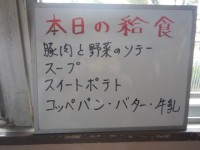 本日の給食
豚肉と野菜のソテー
スープ
スイートポテト
コッペパン・バター・牛乳